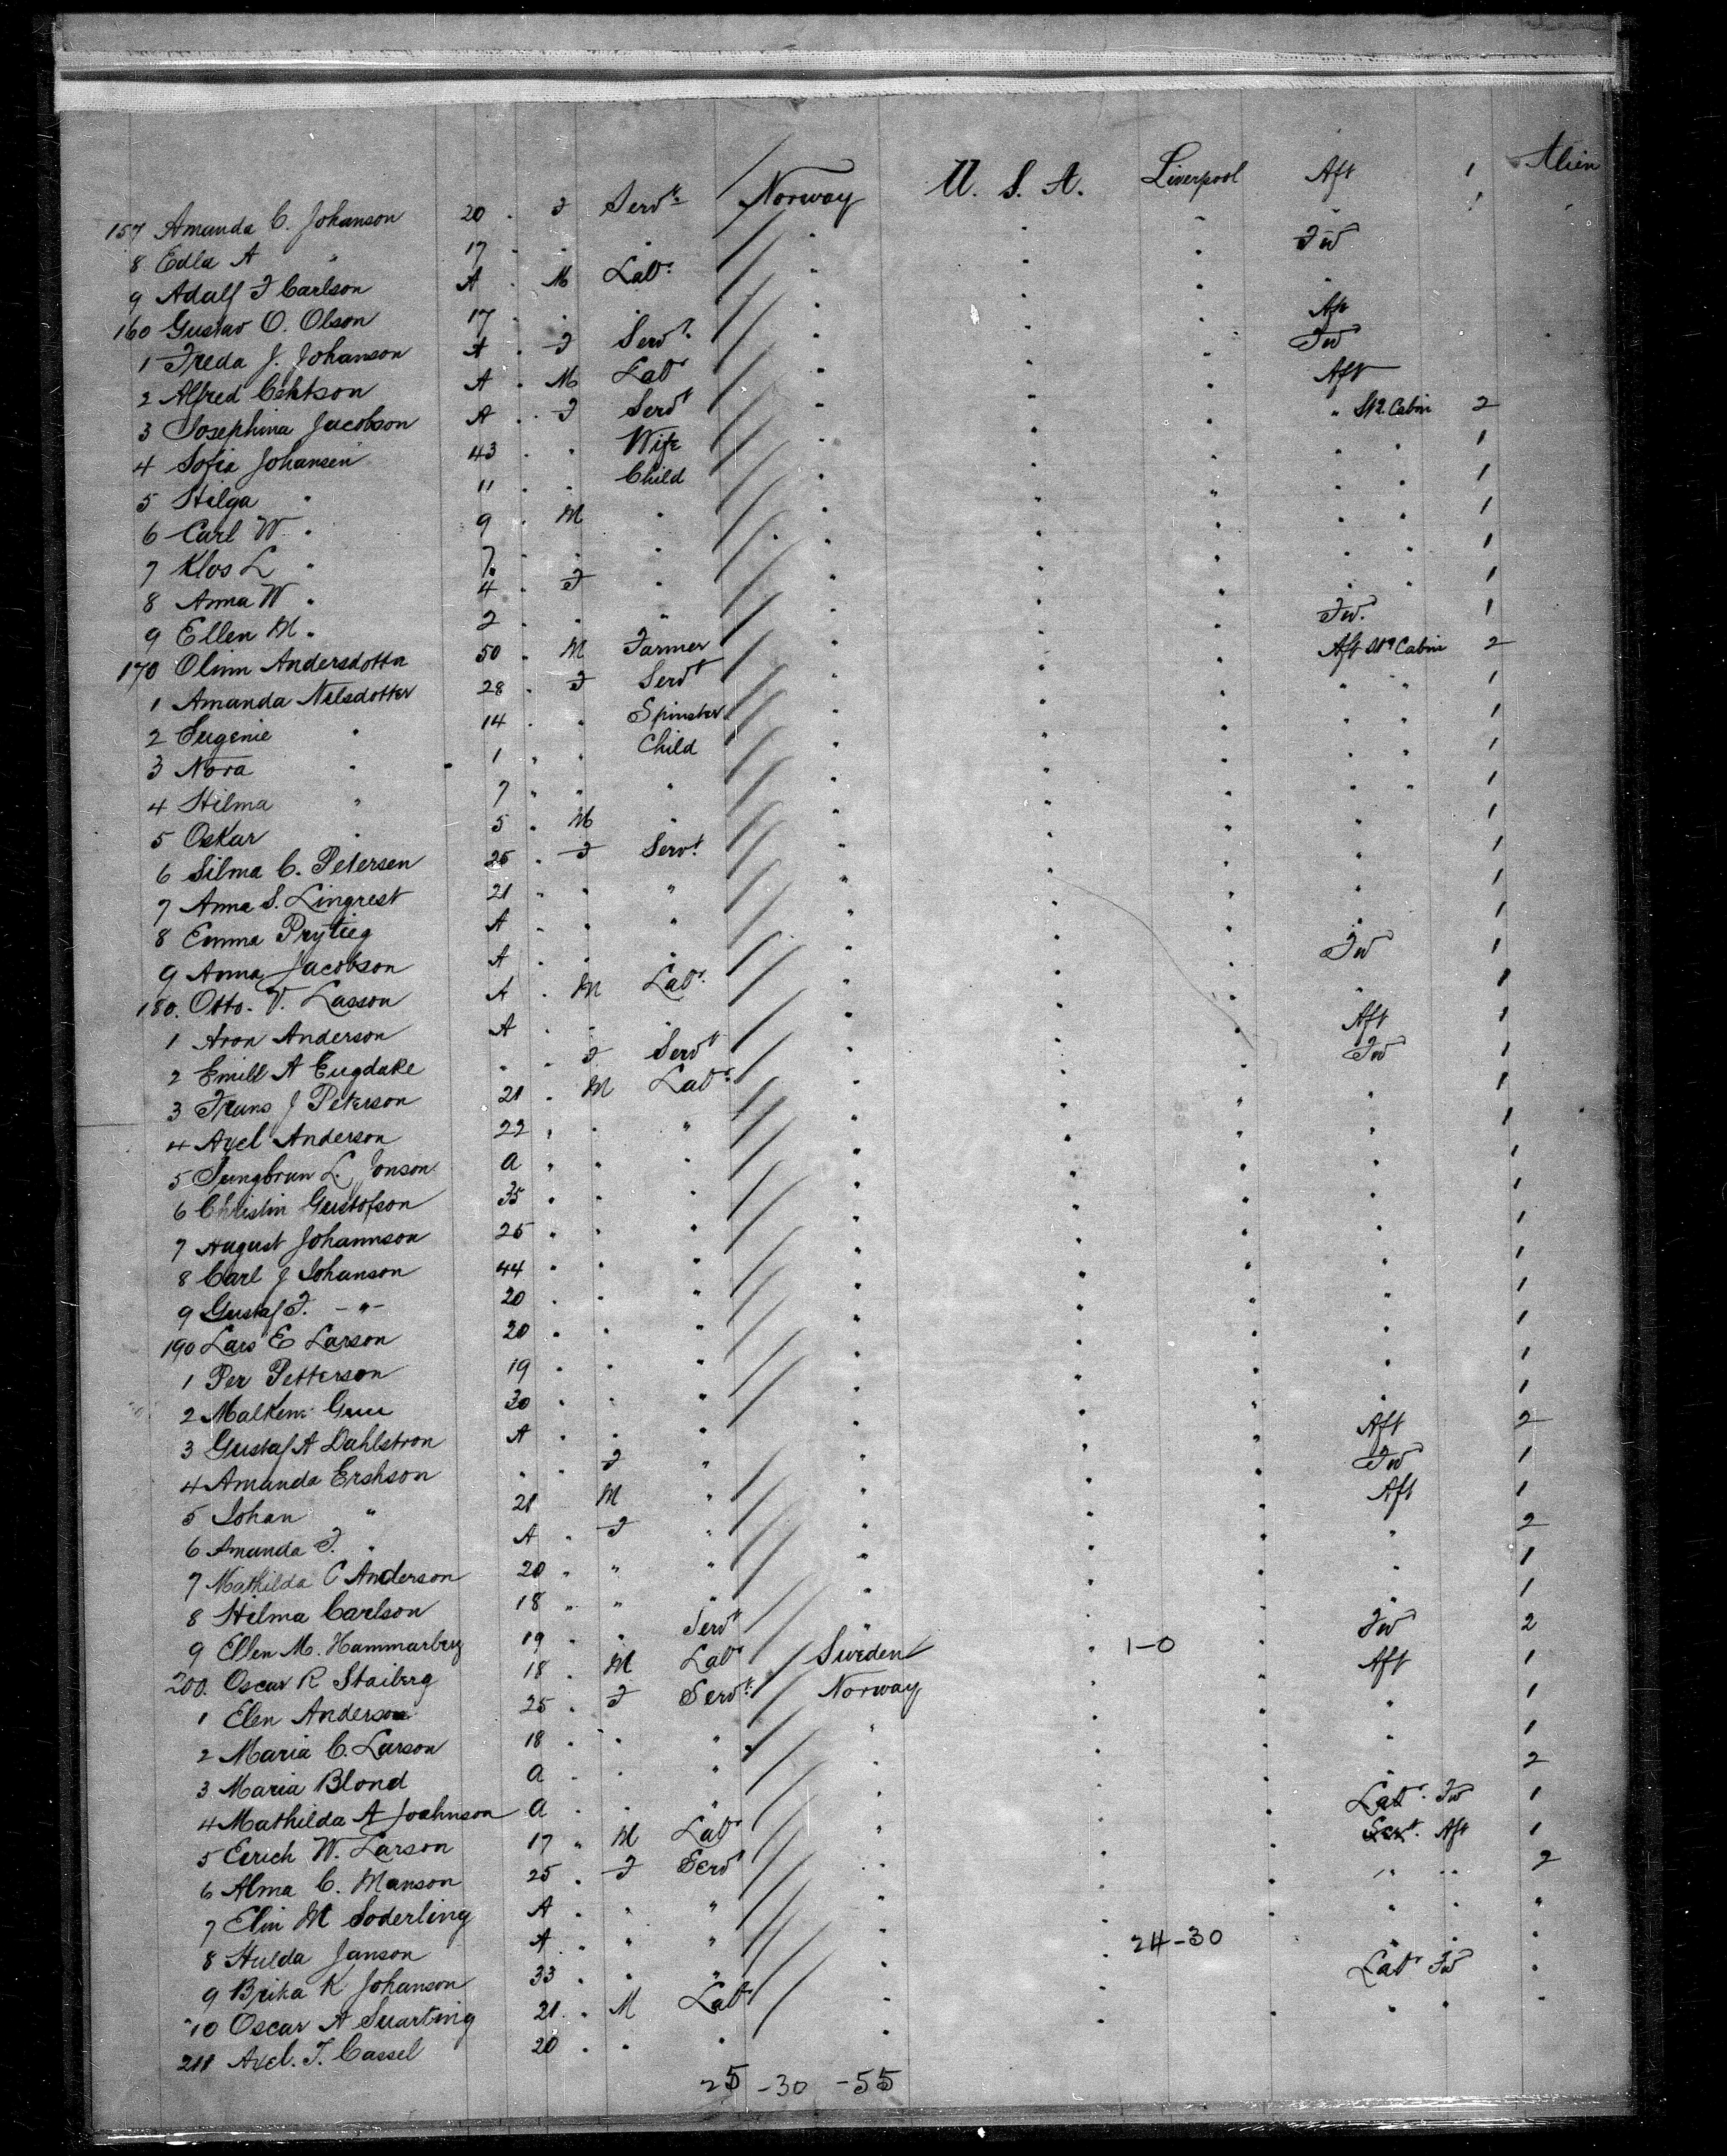 157 Amanda C. Johanson 20 . F Servt Norway U. S. A. Liverpool Aft 1 Alien
8 Edla A " 17 . . . " " " " 1
9 Adolf F Carlson A . M Labr " " " Fw
160 Gustav O. Olson 17 . . . " " " "
1 Freda J. Johanson A . F Servt " " " Aft
2 Alfred A . M Labr " " " Fw
3 Josephina Jacobson A . F Servt " " " Aft
4 Sofia Johansen 43 . " Wife " " " " St2. Cabin 2
5 Hilga " 11 . . Child " " " " " 1
6 Carl W. " 9 . M " " " " " " 1
7 Klos L " 7 . . " " " " " " 1
8 Anna W " 4 . F " " " " " " 1
9 Ellen M. " 2 . . " " " " " " 1
170 Olinn Andersdotter 50 . M Farmer " " " Fw. 1
1 Amanda Nelsdotter 28 . F Servt " " " Aft St2 Cabin 2
2 Eugenie " 14 . " Spinster " " " " " 1
3 Nora " 1 " . Child " " " " " 1
4 Hilma " 7 " " " " " " " " 1
5 Oskar " 5 . M " " " " " " 1
6 Silma C. Petersen 25 . F Servt " " " " 1
7 Anna S. Lingrest 21 " " " " " " " 1
8 Emma A . . " " " " " 1
9 Anna Jacobson A . . " " " " " 1
180. Otto. V. Lasson A . M Labr. " " " Fw 1
1 Aron Anderson A . - " " " " " 1
2 Emill A Eugdake " . F Servt " " " Aft 1
3 Frans J Peterson 21 . M Labr " " " Fw 1
4 Axel Anderson 22 . . " " " " " 1
5 L. Jonson a " " " " " " " 1
6 Christin Gustofson 35 " " " " " " " 1
7 August Johannson 25 . . " " " " " 1
8 Carl J Johanson 44 " " " " " " " 1
9 Gustaf F. -"- 20 . . " " " " " 1
190 Lars E Larson 20 . . " " " " " 1
1 Per Petterson 19 . . " " " " " 1
2 Malkem 30 . . " " " " " 1
3 Gustaf A Dahlstron A . . " " " " " 1
4 Amanda Ershson " . F " " " " Aft 2
5 Johan " 21 M " " " " Fw 1
6 Amanda F. " A . F " " " " Aft 1
7 Mathilda C Anderson 20 " " " " " " " 2
8 Hilma Carlson 18 " " " " " " " 1
9 Ellen M. Hammarberg 19 . " Servt " " " " 1
200. Oscar R Staiberg 18 . M Labr Sweden " 1-0 " Fw 2
1 Elen Anderson 25 . F Servt Norway " " Aft 1
2 Maria C. Larson 18 . . " " " " " 1
3 Maria Blond a . . " " " " " 1
4 Mathilda A Joahnson a . . " " " " " 2
5 Eerich W. Larson 17 " M Labr " " " Labr. Fw 1
6 Alma C. Manson 25 . F Servt " " " Servt. Aft 1
7 Elin M Soderling A . " " " " " " " 2
8 Hulda Janson A . " " " " " " " "
9 Brika K Johanson 33 . " " " " 24-30 " " " "
"10 Oscar A Suarting 21 . M Labr " " " Labr Fw "
211 Axel. T. Cassel 20 . . " " " " " " "
25 -30 -55